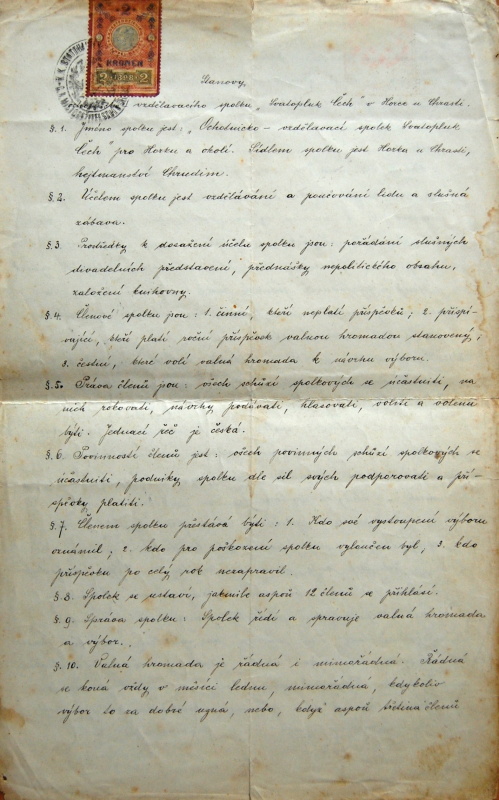 KRONEN
2 2
Stanovy
vzdělávacího spolku „Svatopluk Čech" v Horce u Chrasti.
§. 1. Jméno spolku jest: „Ochotnicko - vzdělávací spolek Svatopluk
Čech" pro Horku a okolí. Sídlem spolku jest Horka u Chrasti,
hejtmanství Chrudim.
§ 2. Účelem spolku jest vzdělávání a poučování lidu a slušná
zábava.
§ 3. Prostředky k dosažení účelu spolku jsou: pořádání slušných
divadelních představení, přednášky nepolitického obsahu,
založení knihovny.
§ 4. Členové spolku jsou: 1. činní, kteří neplatí příspěvků; 2. přispí-
vající, kteří platí roční příspěvek valnou hromadou stanovený;
3. čestní, které volí valná hromada k návrhu výboru.
§. 5. Práva členů jsou: všech schůzí spolkových se účastniti, na
nich rokovati, návrhy podávati, hlasovati, voliti a volenu
býti. Jednací řeč je česká.
§. 6. Povinností členů jest: všech povinných schůzí spolkových se
účastniti, podniky spolku dle sil svých podporovati a pří-
spěvky platiti.
§. 7. Členem spolku přestává býti: 1. Kdo své vystoupení výboru
oznámil; 2. kdo pro poškození spolku vyloučen byl, 3. kdo
příspěvku po celý rok nezapravil.
§ 8. Spolek se ustaví, jakmile aspoň 12 členů se přihlásí.
§. 9. Správa spolku: Spolek řídí a spravuje valná hromada
a výbor.
§. 10. Valná hromada je řádná i mimořádná. Řádná
se koná vždy v měsíci lednu, mimořádná, kdykoliv
výbor to za dobré uzná, nebo, když aspoň třetina členů